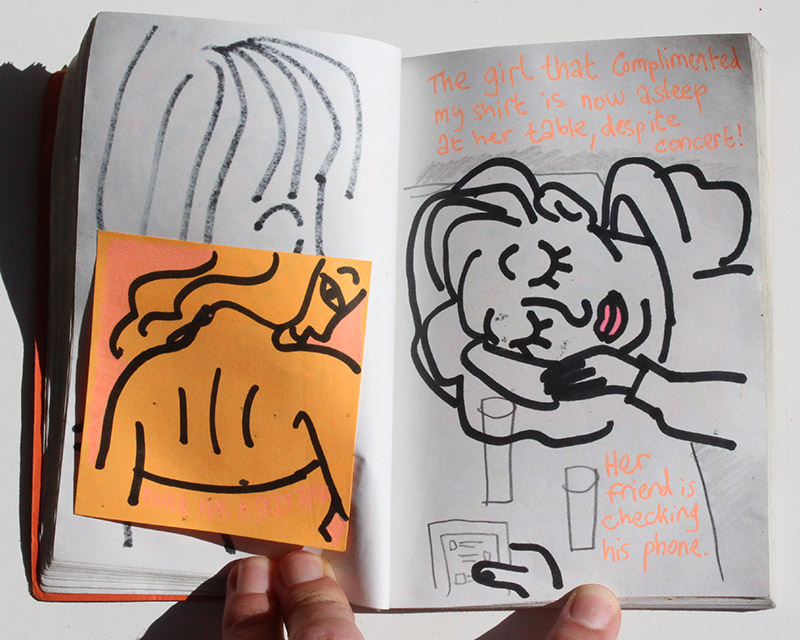 The girl that complimented
my shirt is now asleep
at her table, despite
concert!
Her
friend is
checking
his phone.